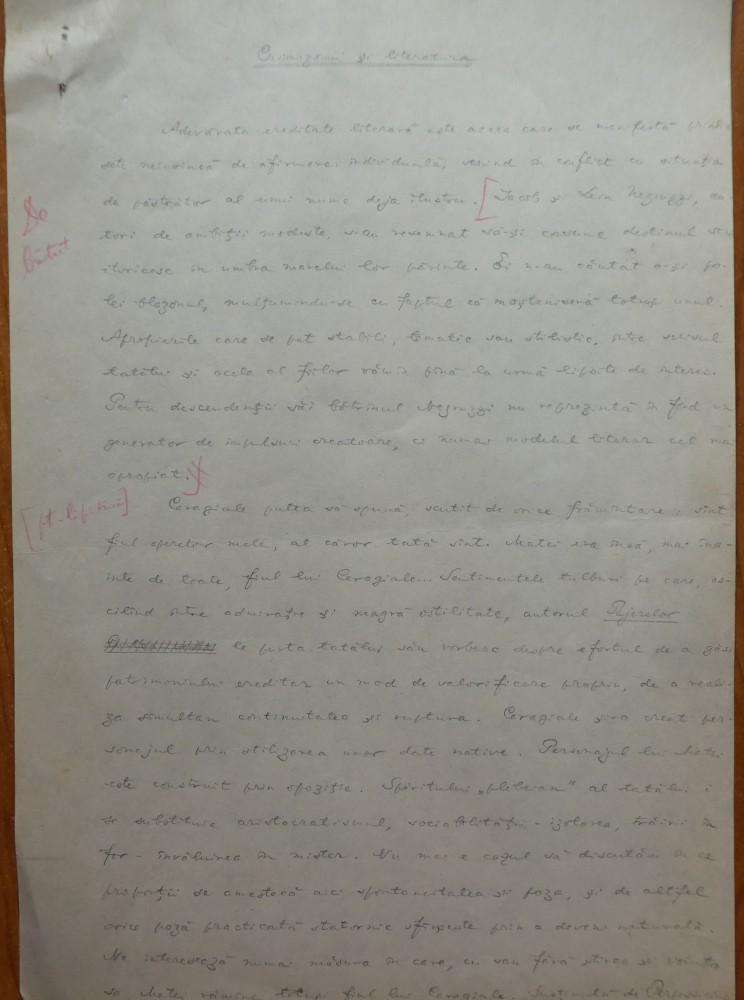 și literatura
Adevărata ereditate literară este aceea care se manifestă prin
sete neînvinsă de afirmare individuală, venind în conflict cu situația
de păstrător al unui nume deja ilustru. [Iacob și Leon Negruzzi, au-
tori de ambiții modeste, s-au resemnat să-și consume destinul scri-
itoricesc în umbra marelui lor părinte. Ei n-au căutat a-și
blazonul, mulțumindu-se cu faptul că moșteniseră totuși unul.
Apropierile care se pot stabili, tematic sau stilistic, între scrisul
tatălui și acela al fiilor rămîn pînă la urmă lipsite de interes.
Pentru descendenții săi bătrînul Negruzzi nu reprezintă în fond un
generator de impulsuri creatoare, ci numai modelul literar cel mai
apropiat.]
Caragiale putea să spună, scutit de orice frămîntare: sînt
fiul operelor mele, al căror tată sînt. Matei era însă, mai îna-
inte de toate, fiul lui Caragiale... Sentimentele tulburi pe care, os-
cilînd între admirație și neagră ostilitate, autorul Pajerelor
le purta tatălui său vorbesc despre efortul de a găsi
patrimoniului ereditar un mod de valorificare propriu, de a reali-
za simultan continuitatea și ruptura. Caragiale și-a creat per-
sonajul prin stilizarea unor date native. Personajul lui Matei
este construit prin opoziție. Spiritului „plebeian" al tatălui i
se substituie aristocratismul, sociabilității - izolarea, trăirii în
for - învăluirea în mister. Nu mai e cazul să discutăm în ce
proporții se amestecă aici spontaneitatea și poza, și de altfel
orice poză practicată statornic sfîrșește prin a deveni naturală.
Ne interesează numai măsura în care, cu sau fără știrea și voința
sa Matei rămîne totuși fiul lui Caragiale.